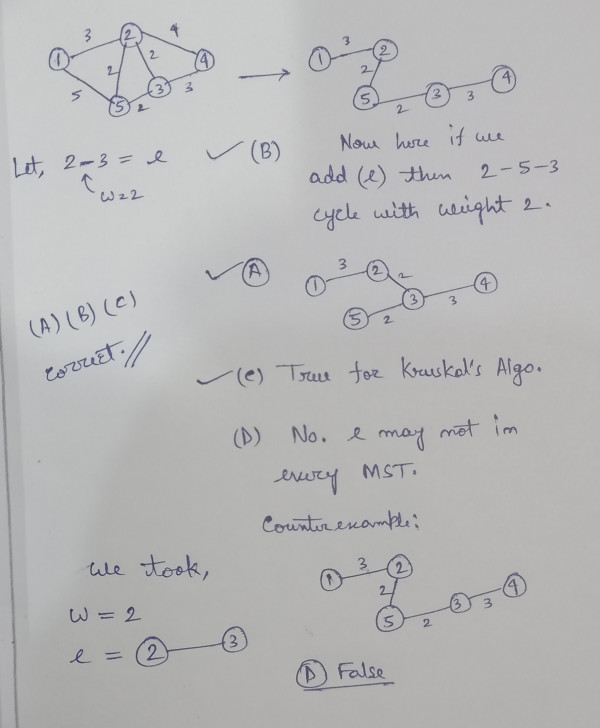 3
4
1
2
2
2
4
5
3
3
5
2
3
1
2
2
5
3
4
2
3
Let, 2 - 3 = e
w=2
✓ (B)
Now here if we
add (e) then 2-5-3
cycle with weight 2.
✓ (A)
3
1
2
2
3
4
3
5
2
(A) (B) (C)
correct. //
✓ (C) True for Kruskal's Algo.
(D) No. e may not in
every MST.
Counterexample:
We took,
w = 2
e = 2 3
1
3
2
2
5
2
3
3
4
(D) False